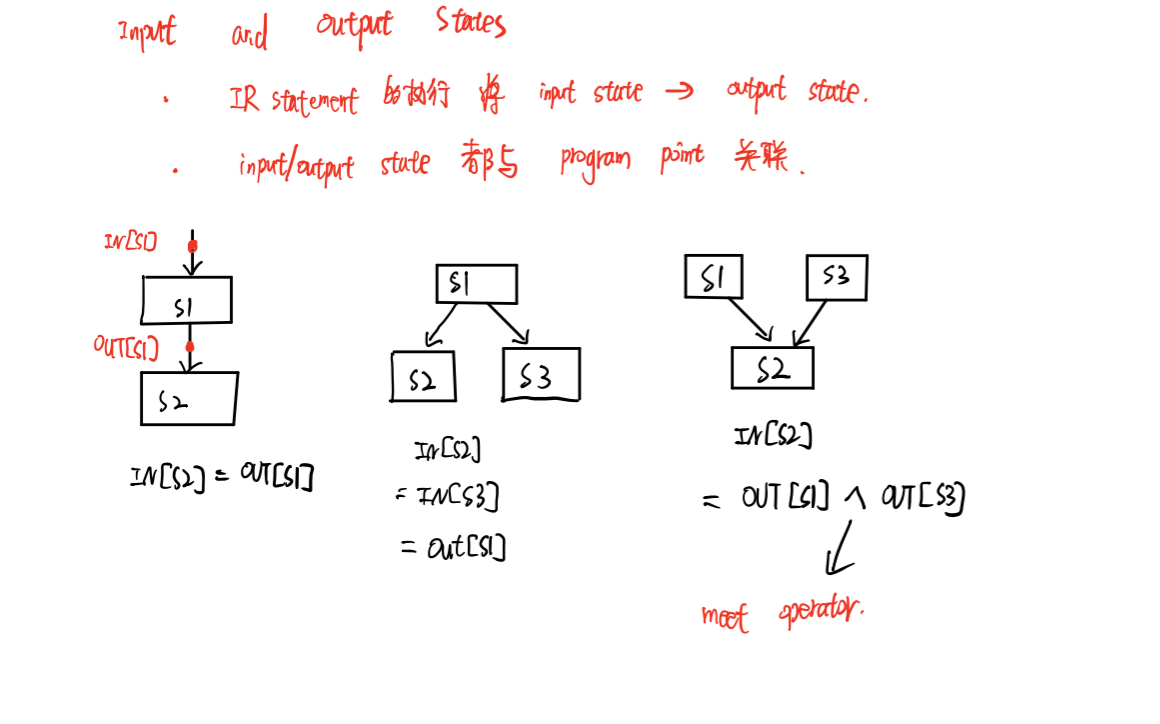 Input and Output States
· IR statement 的执行 将 input state → output state.
· input/output state 都与 program point 关联.
IN[S1]
S1
OUT[S1]
S2
IN[S2] = OUT[S1]
S1
S2 S3
IN[S2]
= IN[S3]
= Out[S1]
S1 S3
S2
IN[S2]
= OUT[S1] ∧ OUT[S3]
meet operator.